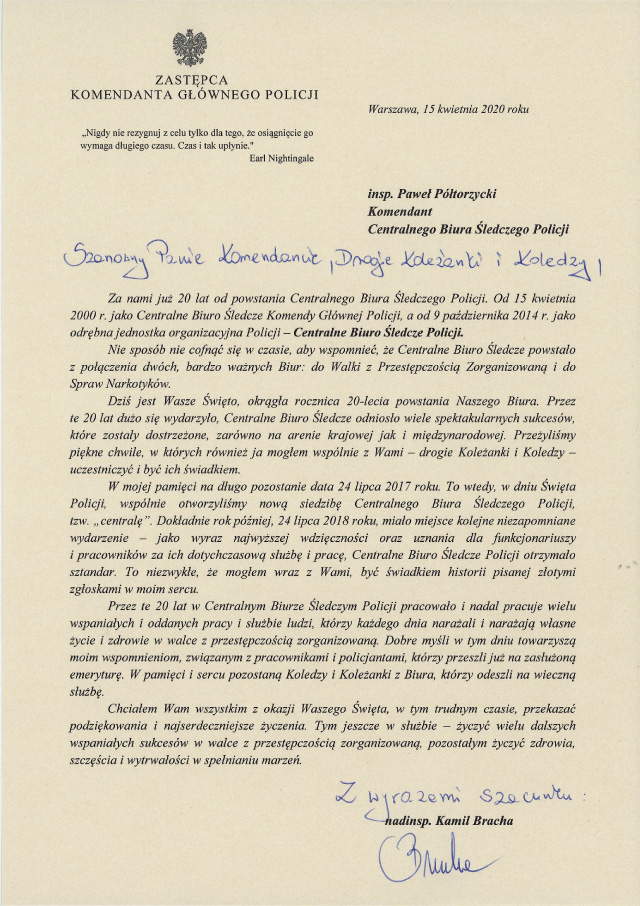 ZASTĘPCA
KOMENDANTA GŁÓWNEGO POLICJI
Warszawa, 15 kwietnia 2020 roku
„Nigdy nie rezygnuj z celu tylko dla tego, że osiągnięcie go
wymaga długiego czasu. Czas i tak upłynie."
Earl Nightingale
insp. Paweł Półtorzycki
Komendant
Centralnego Biura Śledczego Policji
Szanowny Panie Komendancie, Drogie Koleżanki i Koledzy,
Za nami już 20 lat od powstania Centralnego Biura Śledczego Policji. Od 15 kwietnia
2000 r. jako Centralne Biuro Śledcze Komendy Głównej Policji, a od 9 października 2014 r. jako
odrębna jednostka organizacyjna Policji – Centralne Biuro Śledcze Policji.
Nie sposób nie cofnąć się w czasie, aby wspomnieć, że Centralne Biuro Śledcze powstało
z połączenia dwóch, bardzo ważnych Biur: do Walki z Przestępczością Zorganizowaną i do
Spraw Narkotyków.
Dziś jest Wasze Święto, okrągła rocznica 20-lecia powstania Naszego Biura. Przez
te 20 lat dużo się wydarzyło, Centralne Biuro Śledcze odniosło wiele spektakularnych sukcesów,
które zostały dostrzeżone, zarówno na arenie krajowej jak i międzynarodowej. Przeżyliśmy
piękne chwile, w których również ja mogłem wspólnie z Wami – drogie Koleżanki i Koledzy –
uczestniczyć i być ich świadkiem.
W mojej pamięci na długo pozostanie data 24 lipca 2017 roku. To wtedy, w dniu Święta
Policji, wspólnie otworzyliśmy nową siedzibę Centralnego Biura Śledczego Policji,
tzw. „centralę”. Dokładnie rok później, 24 lipca 2018 roku, miało miejsce kolejne niezapomniane
wydarzenie – jako wyraz najwyższej wdzięczności oraz uznania dla funkcjonariuszy
i pracowników za ich dotychczasową służbę i pracę, Centralne Biuro Śledcze Policji otrzymało
sztandar. To niezwykłe, że mogłem wraz z Wami, być świadkiem historii pisanej złotymi
zgłoskami w moim sercu.
Przez te 20 lat w Centralnym Biurze Śledczym Policji pracowało i nadal pracuje wielu
wspaniałych i oddanych pracy i służbie ludzi, którzy każdego dnia narażali i narażają własne
życie i zdrowie w walce z przestępczością zorganizowaną. Dobre myśli w tym dniu towarzyszą
moim wspomnieniom, związanym z pracownikami i policjantami, którzy przeszli już na zasłużoną
emeryturę. W pamięci i sercu pozostaną Koledzy i Koleżanki z Biura, którzy odeszli na wieczną
służbę.
Chciałem Wam wszystkim z okazji Waszego Święta, w tym trudnym czasie, przekazać
podziękowania i najserdeczniejsze życzenia. Tym jeszcze w służbie – życzyć wielu dalszych
wspaniałych sukcesów w walce z przestępczością zorganizowaną, pozostałym życzyć zdrowia,
szczęścia i wytrwałości w spełnianiu marzeń.
Z wyrazami szacunku:
nadinsp. Kamil Bracha